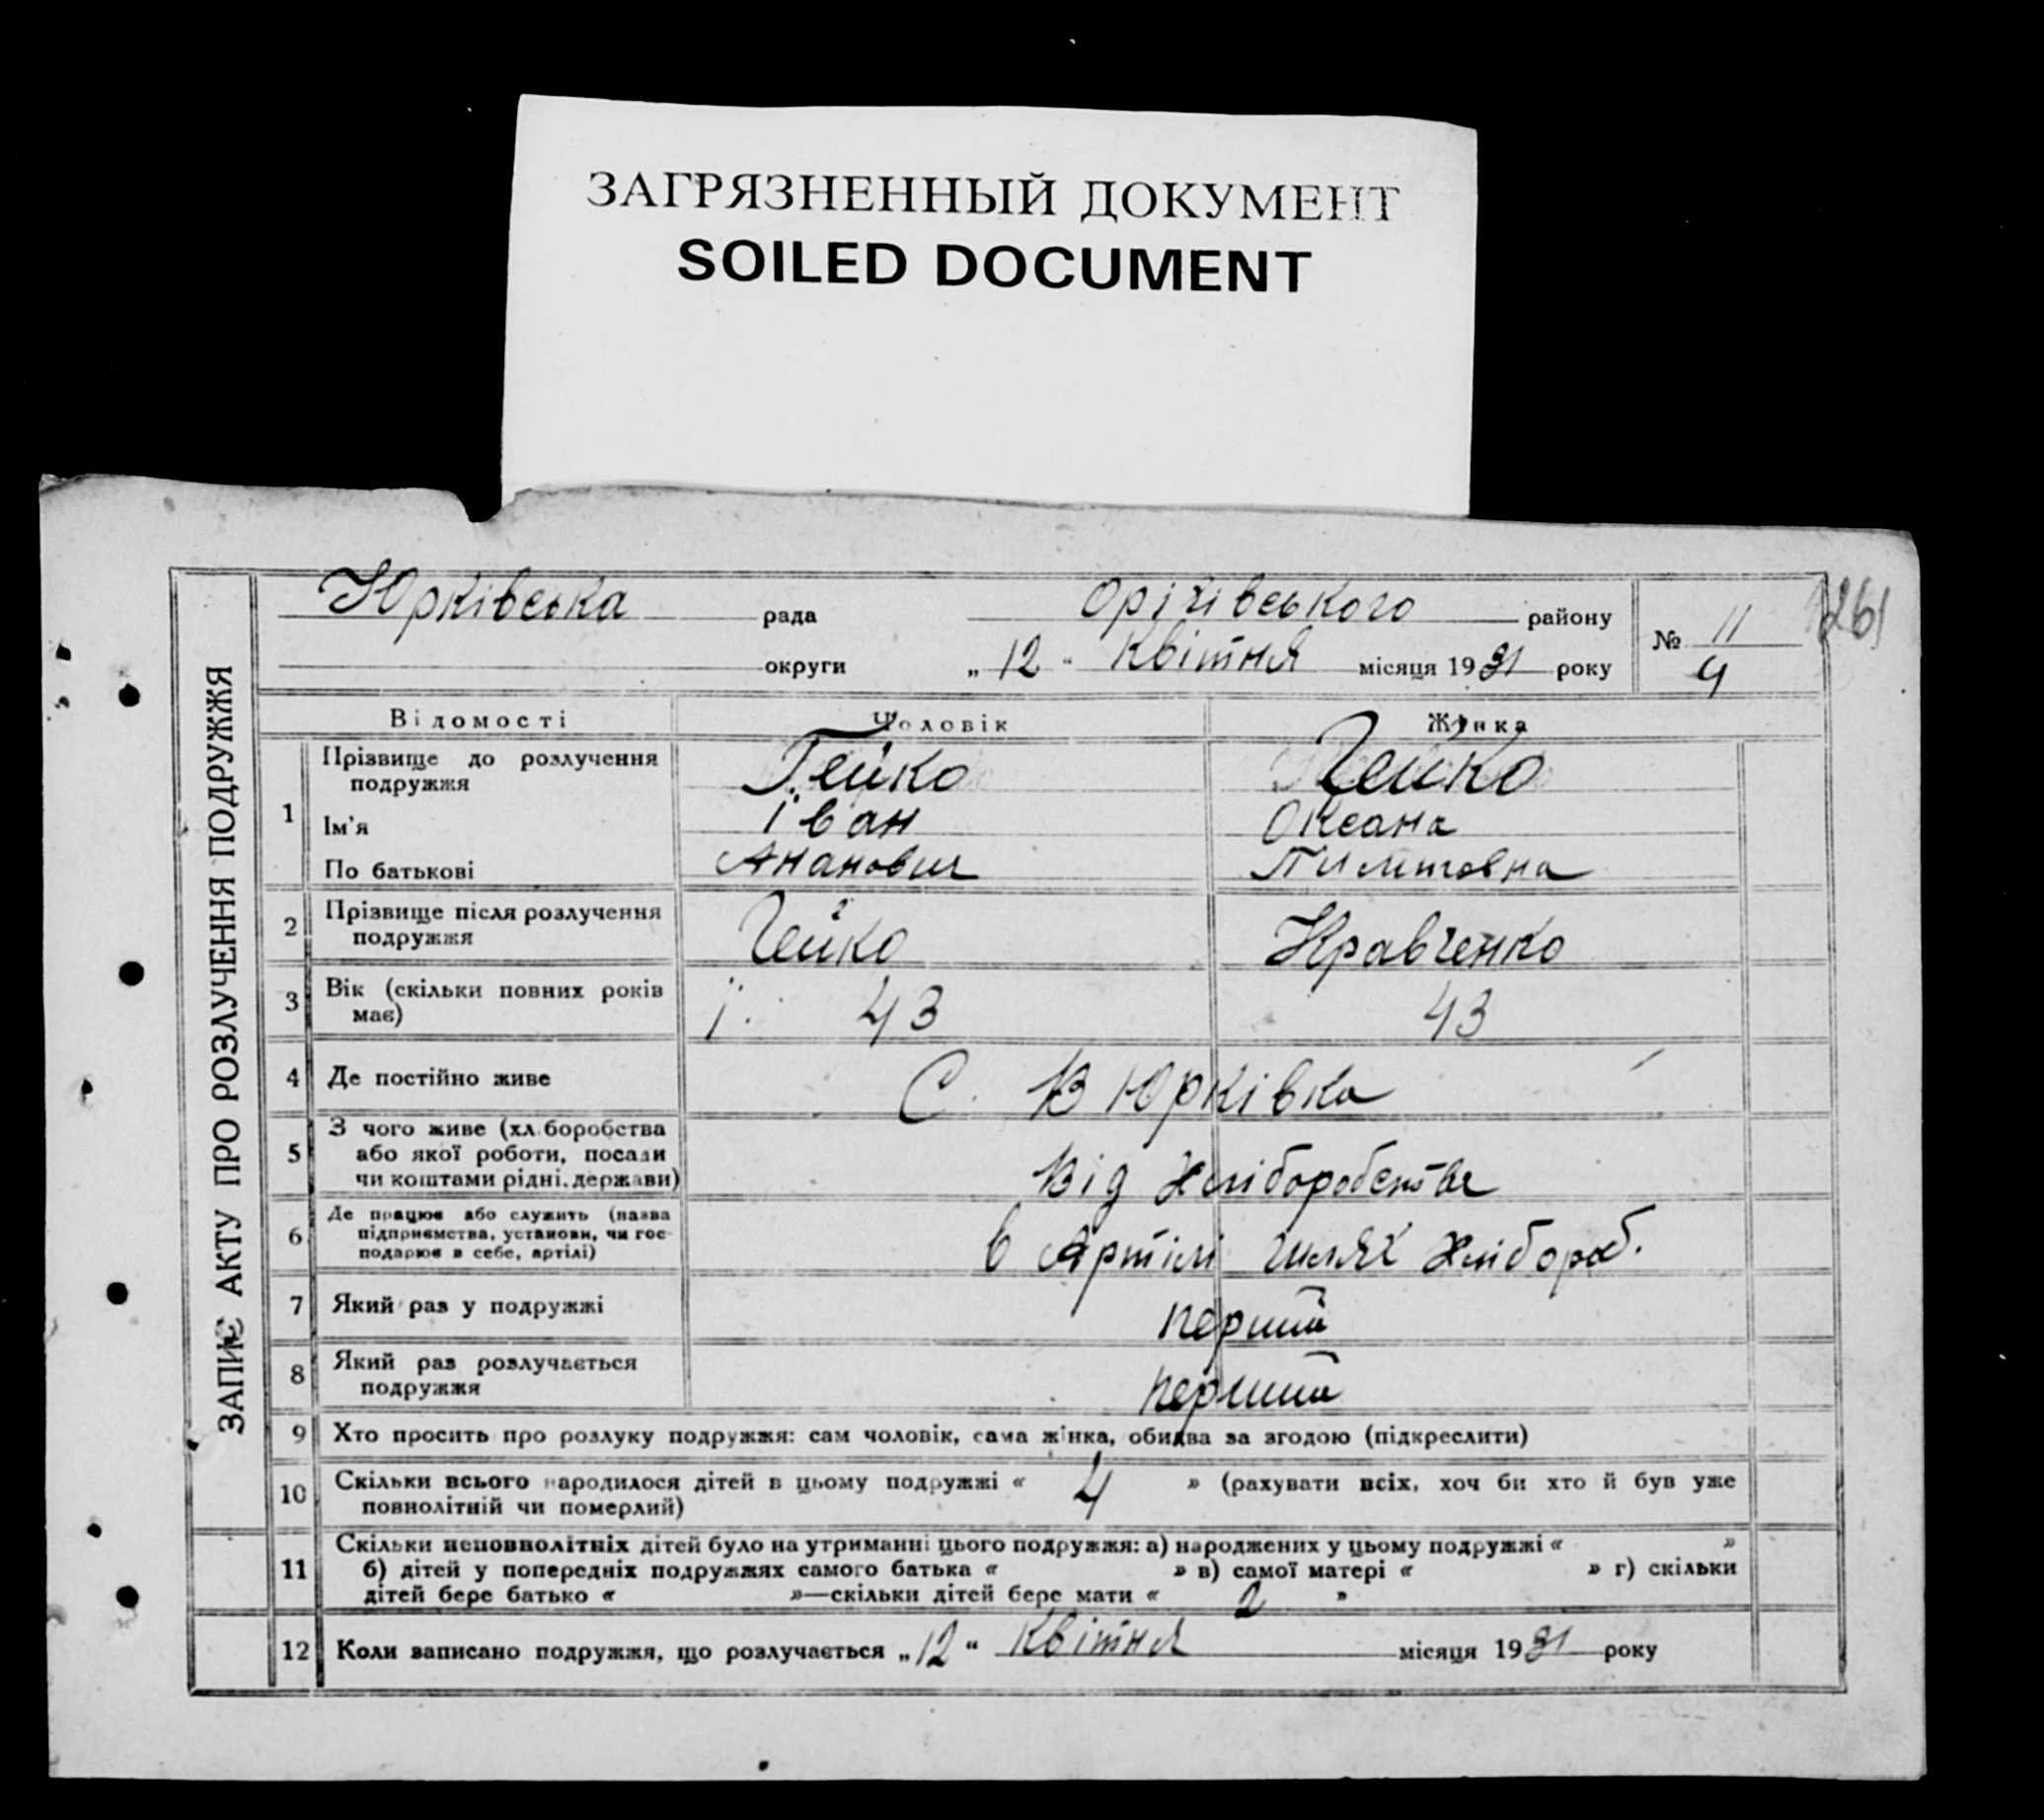 ЗАГРЯЗНЕННЫЙ ДОКУМЕНТ
SOILED DOCUMENT
ЗАПИС АКТУ ПРО РОЗЛУЧЕННЯ ПОДРУЖЖЯ
Юрківська рада Оріхівського району № 11
округи „ 12 “ Квітня місяця 1931 року 4
261
Відомості Чоловік Жінка
1 Прізвище до розлучення подружжя Гейко Гейко
Ім'я Іван Оксана
По батькові Ананович
2 Прізвище після розлучення подружжя Гейко Кравченко
3 Вік (скільки повних років має) 43 43
4 Де постійно живе С. В Юрківка
5 З чого живе (хліборобства або якої роботи, посади чи коштами рідні, держави) Від Хліборобства
6 Де працює або служить (назва підприємства, установи, чи господарює в себе, артілі) в Артілі шлях Хлібороб.
7 Який раз у подружжі перший
8 Який раз розлучається подружжя перший
9 Хто просить про розлуку подружжя: сам чоловік, сама жінка, обидва за згодою (підкреслити)
10 Скільки всього народилося дітей в цьому подружжі « 4 » (рахувати всіх, хоч би хто й був уже
повнолітній чи померлий)
11 Скільки неповнолітніх дітей було на утриманні цього подружжя: а) народжених у цьому подружжі « »
б) дітей у попередніх подружжях самого батька « » в) самої матері « » г) скільки
дітей бере батько « »—скільки дітей бере мати « 2 »
12 Коли записано подружжя, що розлучається „ 12 “ Квітня місяця 1931 року